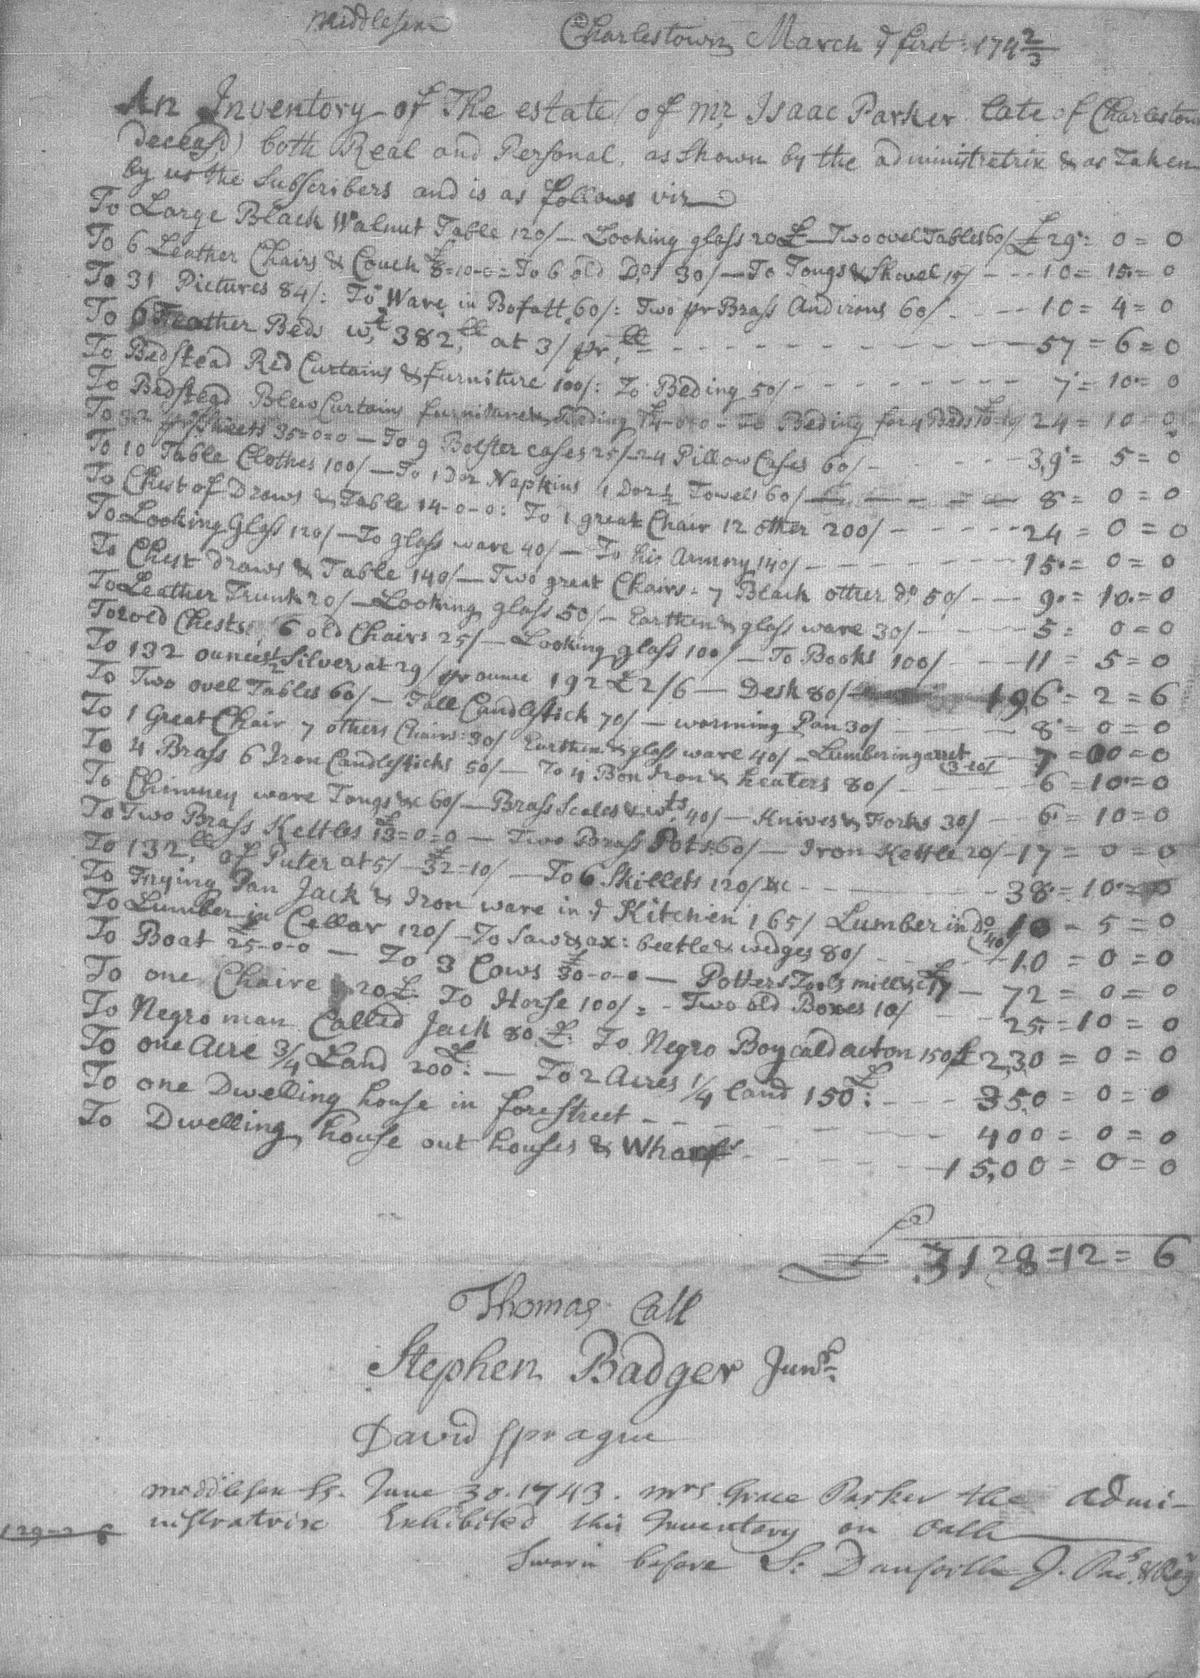 Middlesex
Charlestown March ye first 174 2/3
An Inventory of The estate of mr Isaac Parker late of Charlestown
deceasd) both Real and Personal, as shown by the administretrix & as Taken
by us the Subscribers and is as follows viz
To Large Black Walnut Table 120/ — Looking glass 20£ — Two ovel Tables 60/ £ 29 = 0 = 0
To 6 Leather Chairs & Couch £8=10=0 = To 6 old Do 30/ — To Tongs & Shovel 15/ - - - 10 = 15 = 0
To 31 Pictures 84/: To Ware in Bofatt 60/: Two pr Brass Andirons 60/ - - - 10 = 4 = 0
To 6 Feather Beds wt 382 ll at 3/ pr ll = - - - 57 = 6 = 0
To Bedstead Red Curtains & furniture 100/: To Beding 50/ - - - 7 = 10 = 0
To Bedstead Blew Curtains furniture & Beding £14-0-0 - To Beding for 4 Beds £10-10/ 24 = 10 = 0
To 32 Sheets 35=0=0 — To 9 Bolster cases 25/ 24 Pillow Cases 60/ - - - 39 = 5 = 0
To 10 Table Clothes 100/ — To 1 Doz Napkins 1 Doz 1/2 Towels 60/ - - - 8 = 0 = 0
To Chest of Draws & Table 14-0-0: To 1 great Chair 12 other 200/ - - - 24 = 0 = 0
To Looking Glass 120/ — To glass ware 40/ — To his Armory 140/ - - - 15 = 0 = 0
To Chest draws & Table 140/ — Two great Chairs = 7 Black other do 50/ - - - 9 = 10 = 0
To Leather Trunk 20/ — Looking glass 50/ — Earthen & glass ware 30/ - - - 5 = 0 = 0
To 2 old Chests, 6 old Chairs 25/ — Looking glass 100/ — To Books 100/ - - - 11 = 5 = 0
To 132 ounces 1/2 Silver at 29/ pr ounce 192£ 2/6 — Desk 80/ 196 = 2 = 6
To Two ovel Tables 60/ — Tall Candlestick 70/ — warming Pan 30/ - - - 8 = 0 = 0
To 1 Great Chair 7 others Chairs: 30/ Earthen & glass ware 40/ — Lumber in garret 3-10/ - 7 = 00 = 0
To 4 Brass 6 Iron Candlesticks 50/ — To 4 Box Iron & heaters 80/ - - - 6 = 10 = 0
To Chimney ware Tongs &c 60/ — Brass Scales & wts 40/ — Knives & Forks 30/ - - 6 = 10 = 0
To Two Brass Kettles £13=0=0 — Two Brass Pots 60/ — Iron Kettle 20/ - 17 = 0 = 0
To 132 ll of Puter at 5/ — £32=10/ — To 6 Skillets 120/ &c - - - 38 = 10 = 0
To Frying Pan Jack & Iron ware in ye Kitchen 165/ Lumber in Do 40/ 10 = 5 = 0
To Lumber in Cellar 120/ — To Saw & ax: beetle & wedges 80/ - - - 10 = 0 = 0
To Boat 25-0-0 — To 3 Cows £30-0-0 — Potters Tools mill &c £17 — 72 = 0 = 0
To one Chaire 20£: To Horse 100/ = - Two old Boxes 10/ - - 25 = 10 = 0
To Negro man Called Jack 80£: To Negro Boy cald acton 150£ 230 = 0 = 0
To one Acre 3/4 Land 200£: — To 2 Acres 1/4 land 150£: - - - 350 = 0 = 0
To one Dwelling house in fore Street - - - 400 = 0 = 0
To Dwelling house out houses & Wharf - - - 15,00 = 0 = 0
£ 3128 = 12 = 6
Thomas Call
Stephen Badger Junr
David Sprague
Middlesex ss. June 30. 1743. mrs Grace Parker the admi-
nistratrix Exhibited this Inventory on Oath
Sworn before S: Danforth J. Pac. & Reg